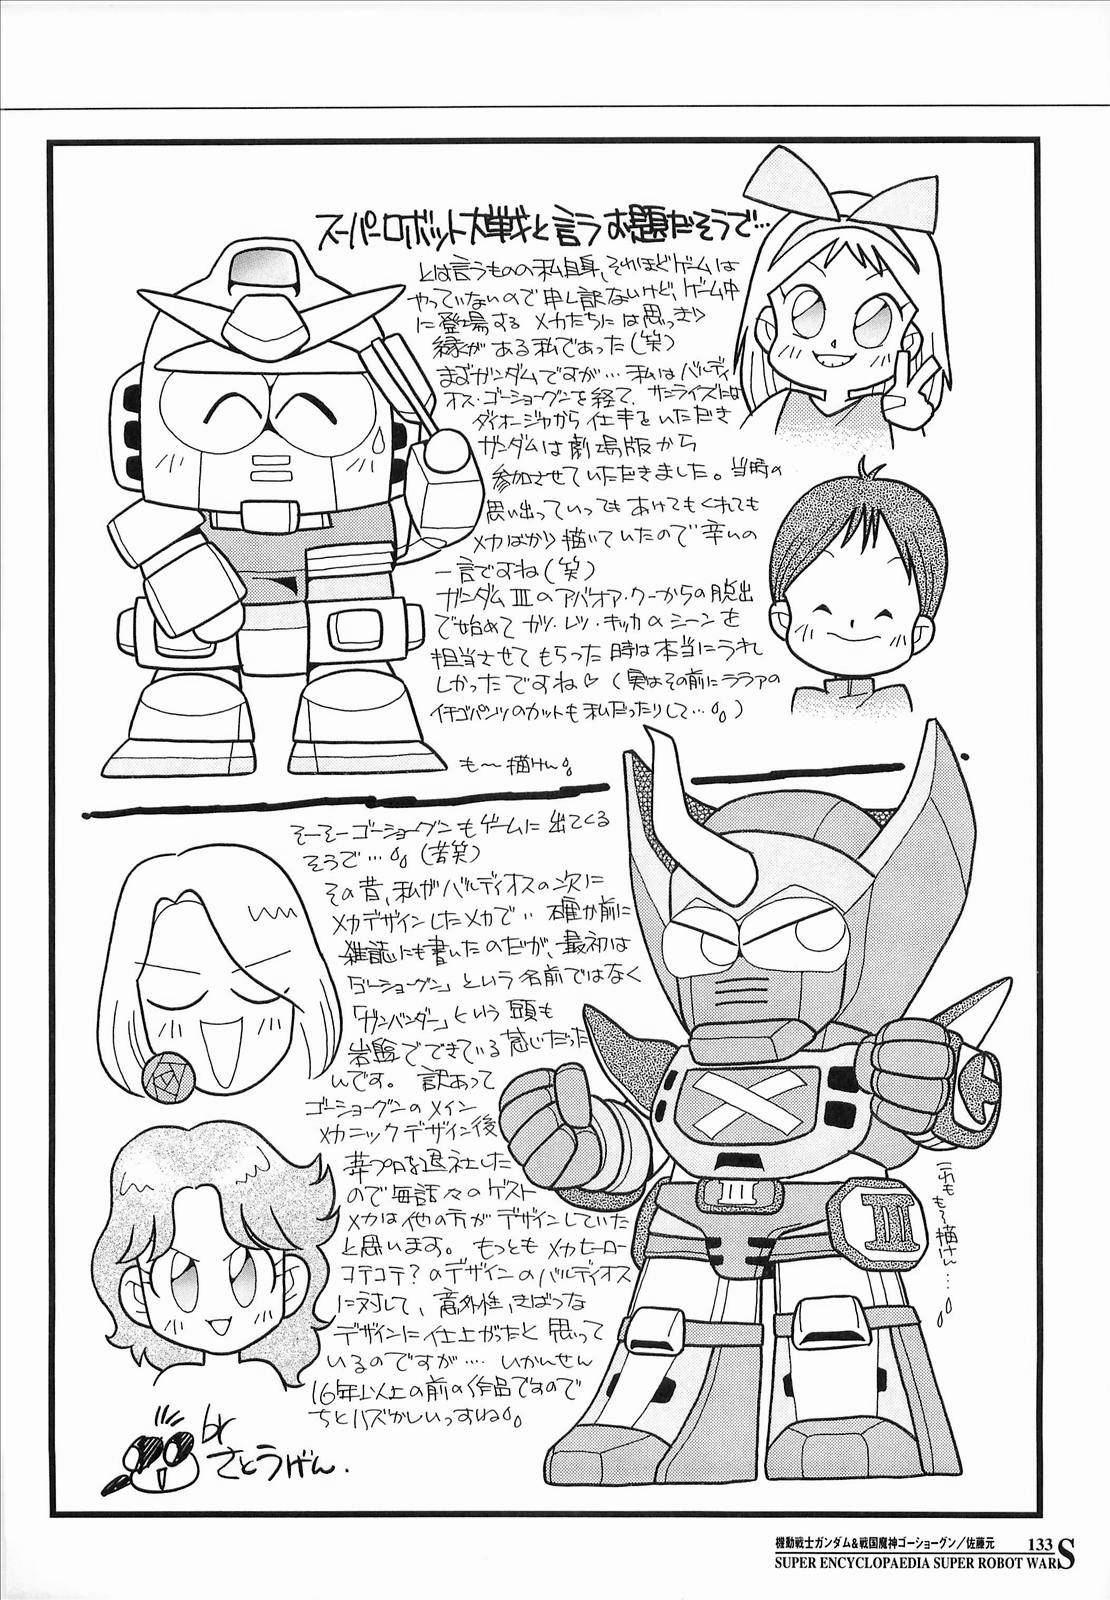 スーパーロボット大戦と言うお題だそうで…
とは言うものの私自身、それほどゲームは
やっていないので申し訳ないけど、ゲーム中
に登場するメカたちには思っきり
縁がある私であった(笑)
まずガンダムですが…私はバルディ
オス・ゴーショーグンを経て、サンライズには
ダイオージャから仕事をいただき
ガンダムは劇場版から
参加させていただきました。当時の
思い出っていってもあけてもくれても
メカばかり描いていたので辛いの
一言ですね(笑)
ガンダムIIIのアバオア・クーからの脱出
で始めてカツ・レツ・キッカのシーンを
担当させてもらった時は本当にうれ
しかったですね♡(実はその前にララァの
イチゴパンツのカットも私だったりして…)
も〜描けん
そーそーゴーショーグンもゲームに出てくる
そうで…(苦笑)
その昔、私がバルディオスの次に
メカデザインしたメカで‥確か前に
雑誌にも書いたのだが、最初は
「ゴーショーグン」という名前ではなく
「ガンバンダー」という頭も
岩盤でできている感じだった
んです。訳あって
ゴーショーグンのメイン
メカニックデザイン後
葦プロを退社した
ので毎話々のゲスト
メカは他の方がデザインしていた
と思います。もっともメカヒーロー
コテコテ?のデザインのバルディオス
に対して、意外性、きばつな
デザインに仕上がったと思って
いるのですが…‥いかんせん
16年以上の前の作品ですので
ちとハズかしいっすね
これも も〜描けん…‥
by
さとうげん.
機動戦士ガンダム&戦国魔神ゴーショーグン/佐藤元 133
SUPER ENCYCLOPAEDIA SUPER ROBOT WARS
III
III